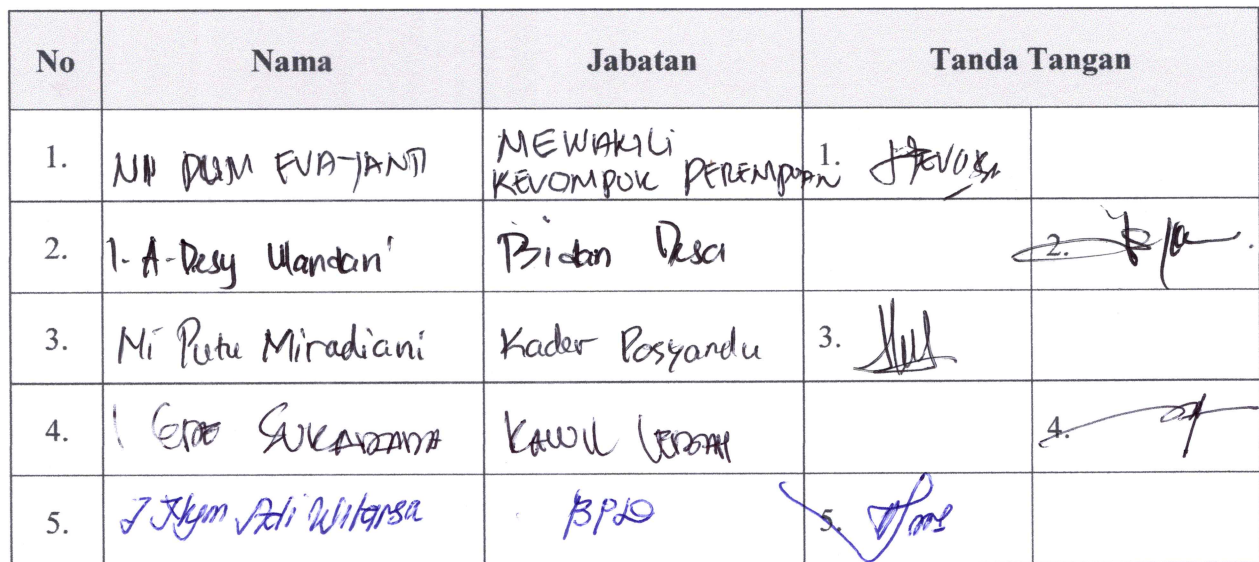 No Nama Jabatan Tanda Tangan
1. EVA JANTI MEWAKILI KELOMPOK PEREMPUAN 1.
2. I-A-Desy Wandani Bidan Desa 2.
3. Ni Putu Miradiani Kader Posyandu 3.
4. I GEDE SUKADANA KAWIL 4.
5. I Adi Witarsa BPD 5.